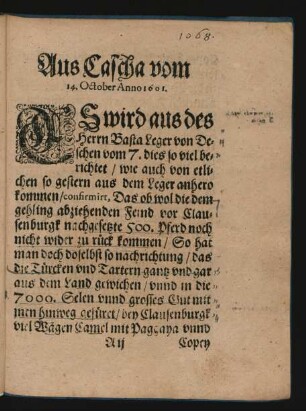 1068.
Aus Cascha vom
14. October Anno 1601.
ES wird aus des
Herrn Basta Leger von De-
schen vom 7. dies so viel be-
richtet / wie auch von etli-
chen so gestern aus dem Leger anhero
kommen / confirmirt, Das ob wol die dem
gehling abziehenden Feind vor Clau-
senburgk nachgesetzte 500. Pferd noch
nicht wider zu rück kommen / So hat
man doch doselbst so nachrichtung / das
die Türcken vnd Tartern gantz vnd gar
aus dem Land gewichen / vnnd in die
7000. Selen vnnd grosses Gut mit
jnen hinweg gefüret / bey Clausenburgk
viel Wägen Camel mit Paggaya vnnd
A ij Copey